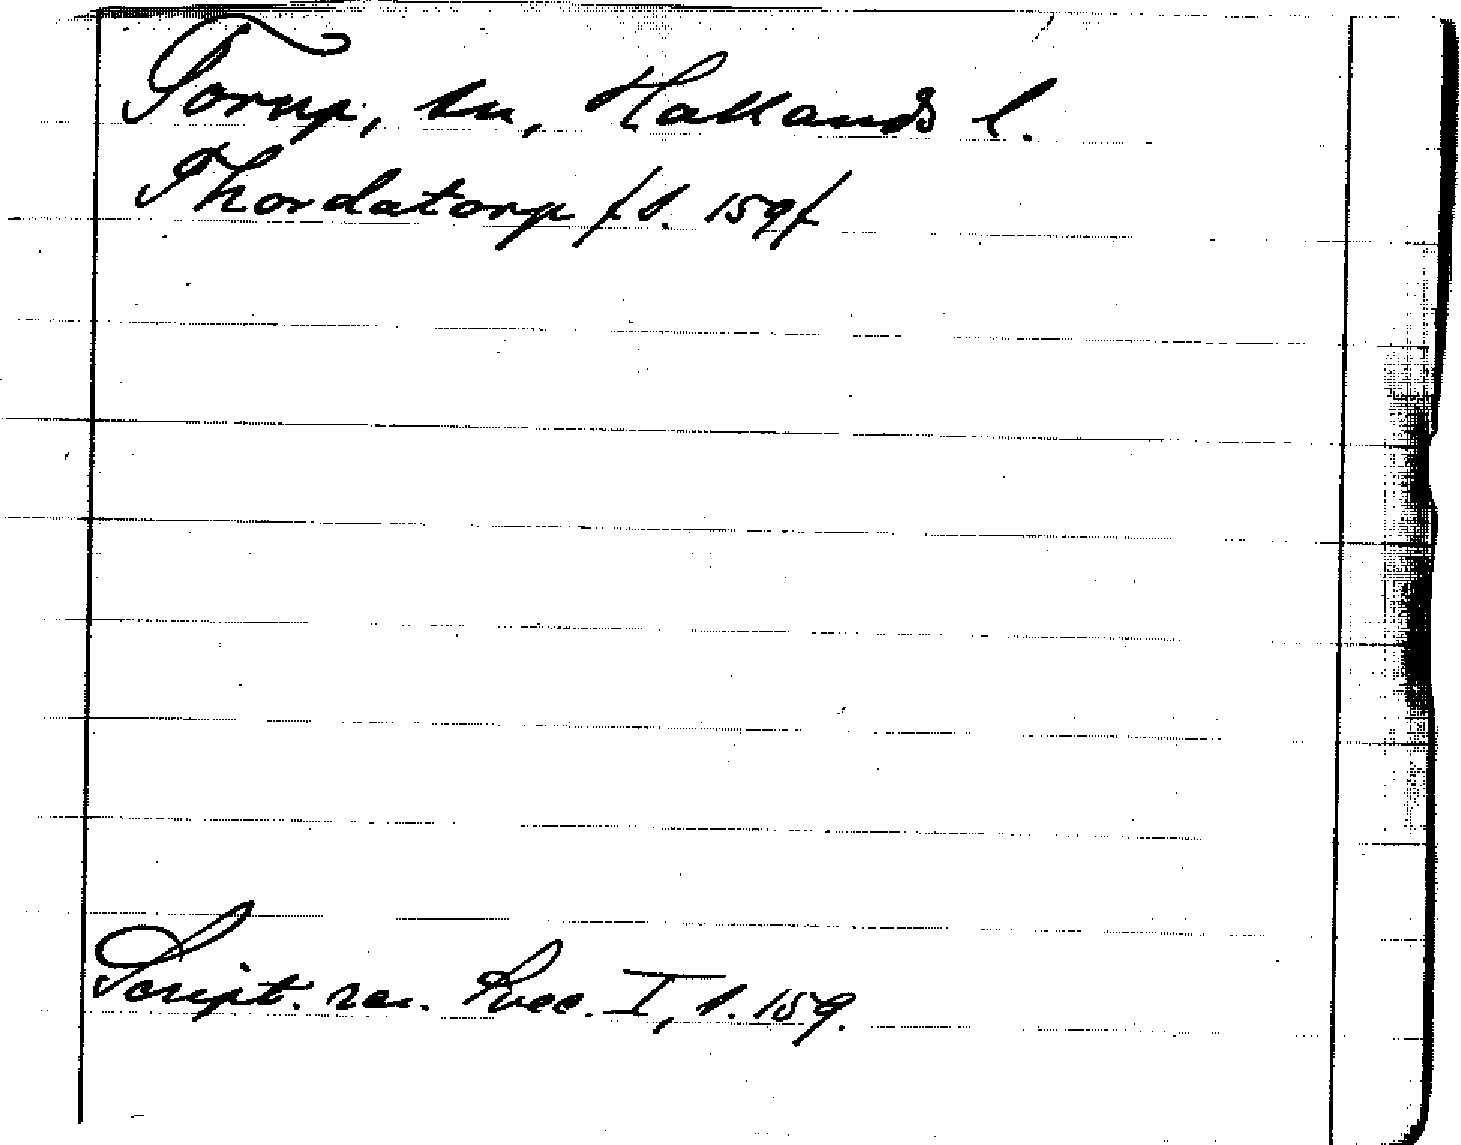 Torup, sn, Hallands l.
Thordatorp /s. 159/
Script. rer. Svec. I, s. 159.